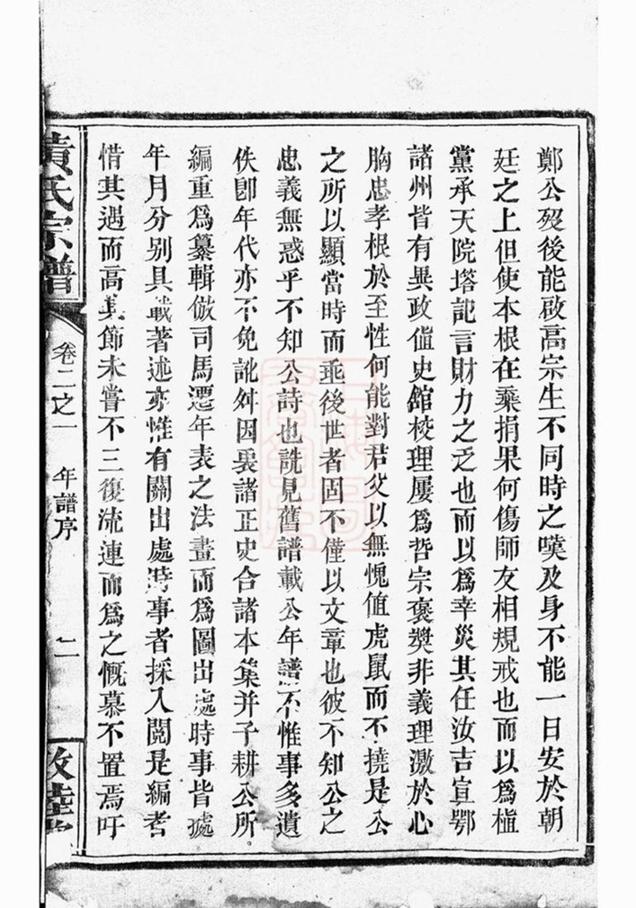 鄭公歿後能啟高宗生不同時之嘆及身不能一日安於朝
廷之上但使本根在棄捐果何傷師友相規戒也而以爲植
黨承天院塔記言財力之乏也而以爲幸災其任汝吉宣鄂
諸州皆有異政僅史館校理屢爲哲宗褒奬非義理激於心
胸忠孝根於至性何能對君父以無愧值虎鼠而不撓是公
之所以顯當時而垂後世者固不僅以文章也彼不知公之
忠義無惑乎不知公詩也詵見舊譜載公年譜不惟事多遺
佚卽年代亦不免訛舛因裒諸正史合諸本集并子耕公所
編重爲纂輯倣司馬遷年表之法畫而爲圖出處時事皆處
年月分別具載著述亦惟有關出處時事者採入閱是編者
惜其遇而高其節未嘗不三復流連而爲之慨慕不置焉吁
黃氏宗譜
卷二之一
年譜序
二
敦睦堂